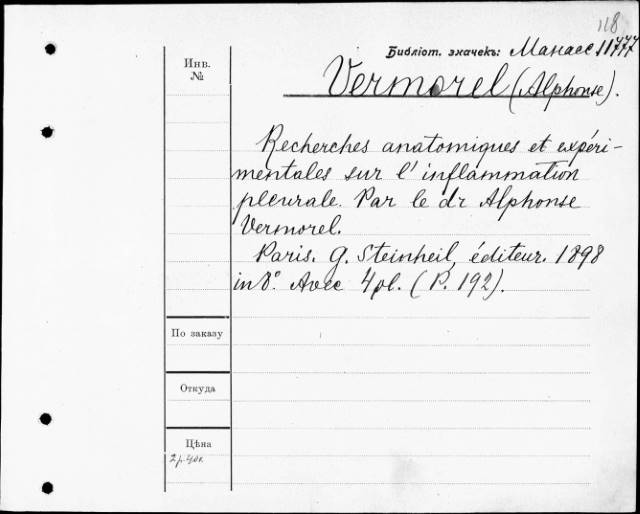 118
Библіот. значекъ: Манасс 11777
Инв.
№
Vermorel (Alphonse).
Recherches anatomiques et expéri-
mentales sur l'inflammation
pleurale. Par le dr Alphonse
Vermorel.
Paris. G. Steinheil, éditeur. 1898
in 8°. Avec 4 pl. (P. 192).
По заказу
Откуда
Цѣна
2 р. 40 к.